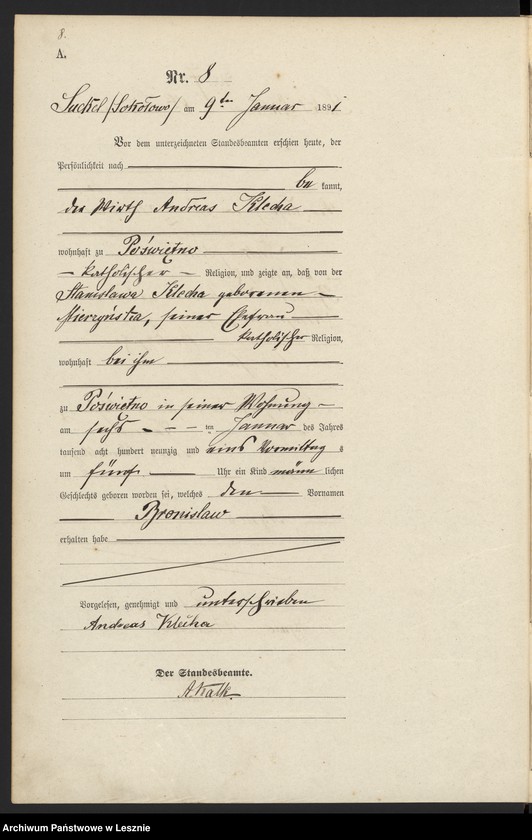 8.
A.
Nr. 8
Suckel /Sokołowo/ am 9ten Januar 1891
Vor dem unterzeichneten Standesbeamten erschien heute, der
Persönlichkeit nach
be kannt,
der Wirth Andreas Klecha
wohnhaft zu Poświętno
katholischer Religion, und zeigte an, daß von der
Stanislawa Klecha geborenen
seiner Ehefrau
katholischer Religion,
wohnhaft bei ihm
zu Poświetno in seiner Wohnung
am sechs ten Januar des Jahres
tausend acht hundert neunzig und eins Vormittag s
um fünf Uhr ein Kind männ lichen
Geschlechts geboren worden sei, welches den Vornamen
Bronislaw
erhalten habe
Vorgelesen, genehmigt und unterschrieben
Andreas Klecha
Der Standesbeamte.
Archiwum Państwowe w Lesznie